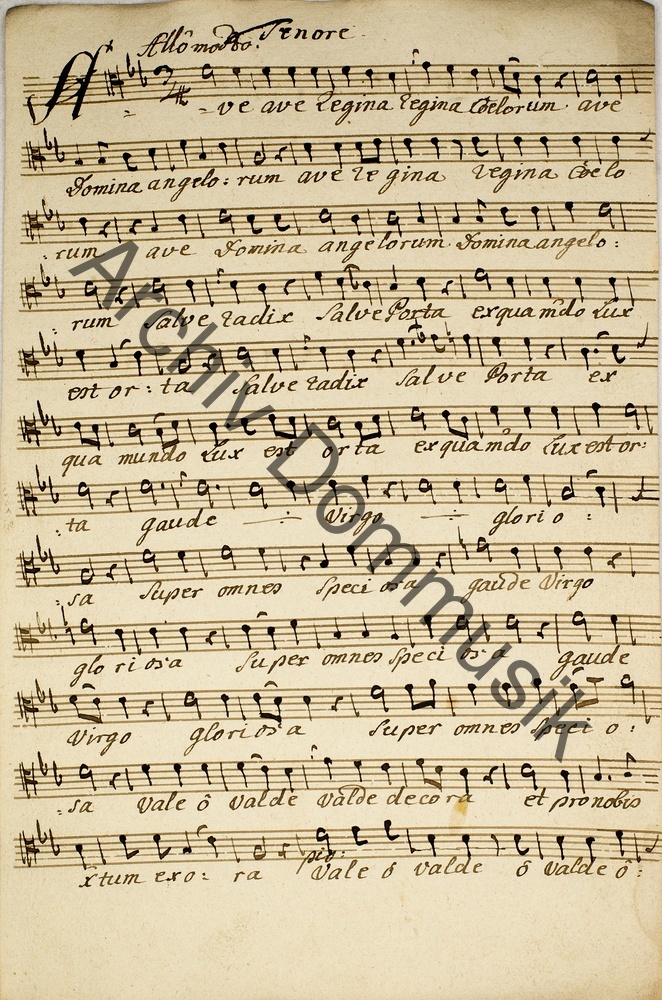 Tenore
Allõ modto.
A = -ve ave regina regina Coelorum ave
Domina angelo: rum ave re gina regina Coelo
: rum ave Domina angelorum Domina angelo:
rum Salve radix Salve Porta ex qua mdo Lux
est or: ta Salve radix Salve Porta ex
qua mundo Lux est orta ex qua mdo Lux est or:
: ta gaude ÷ Virgo ÷ glorio:
: sa Super omnes Speci osa gaude Virgo
glo ri osa Super omnes Speci osa gaude
Virgo gloriosa Super omnes Speci o:
: sa Vale ô Valde Valde decora et pro nobis
x̃tum exo: ra Vale ô Valde ô Valde ô:
pia:
Archiv Dommusik